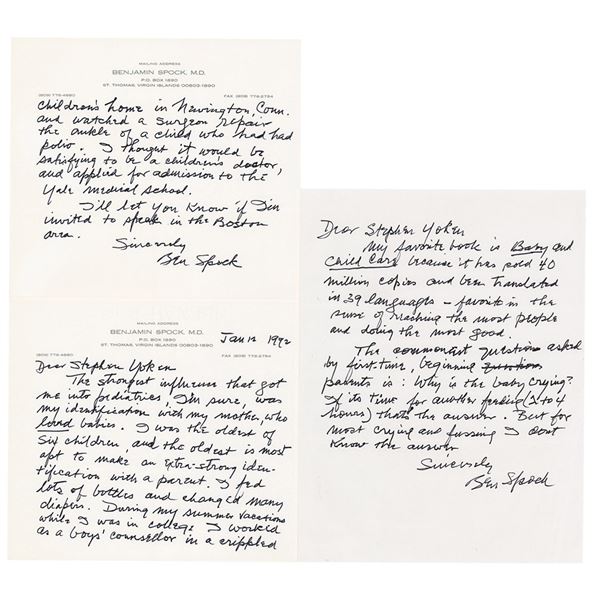 MAILING ADDRESS
BENJAMIN SPOCK, M.D.
P.O. BOX 1890
ST. THOMAS, VIRGIN ISLANDS 00803-1890
(809) 776-4880 FAX (809) 776-2794
children's home in Newington, Conn.
and watched a surgeon repair
the ankle of a child who had had
polio. I thought it would be
satisfying to be a children's doctor,
and applied for admission to the
Yale medical school.
I'll let you know if I'm
invited to speak in the Boston
area.
Sincerely
Ben Spock
MAILING ADDRESS
BENJAMIN SPOCK, M.D.
P.O. BOX 1890
ST. THOMAS, VIRGIN ISLANDS 00803-1890
Jan 12 1992
(809) 776-4880 FAX (809) 776-2794
Dear Stephen Yoken
The strongest influence that got
me into pediatrics, I'm sure, was
my identification with my mother, who
loved babies. I was the oldest of
six children, and the oldest is most
apt to make an extra-strong iden-
tification with a parent. I fed
lots of bottles and changed many
diapers. During my summer vacations
while I was in college I worked
as a boys' counsellor in a crippled
Dear Stephen Yoken
My favorite book is Baby and
Child Care because it has sold 40
million copies and been translated
in 39 languages – favorite in the
sense of reaching the most people
and doing the most good.
The commonest question asked
by first-time, beginning
parents is: Why is the baby crying?
If its time for another feeding (2 to 4
hours) that's the answer. But for
most crying and fussing I dont
know the answer
Sincerely
Ben Spock